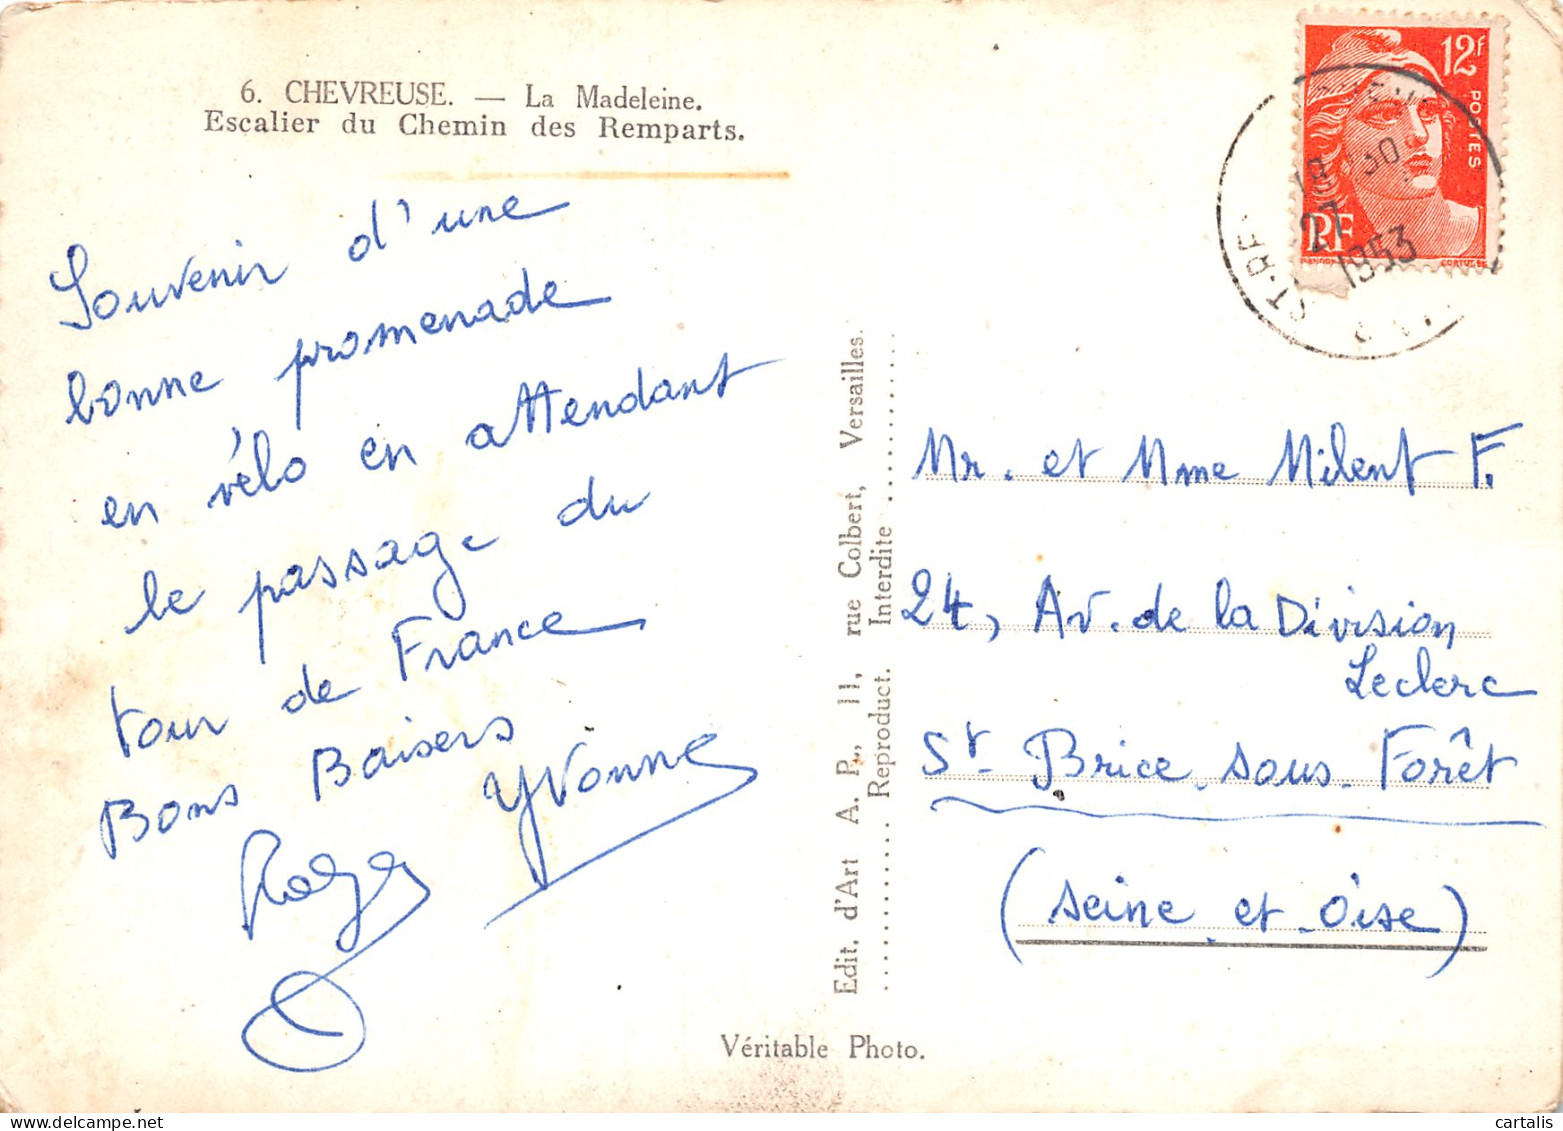 6. CHEVREUSE. — La Madeleine.
Escalier du Chemin des Remparts.
Souvenir d'une
bonne promenade
en vélo en attendant
le passage du
tour de France
Bons Baisers
Yvonne
Roger
12f
POSTES
RF
18 30
27
1953
ST-RE
Edit. d'Art A. P., 11, rue Colbert, Versailles.
Reproduct. Interdite
Mr. et Mme Milent F.
24, Av. de la Division
Leclerc
St Brice sous Forêt
(Seine et Oise)
Véritable Photo.
cartalis